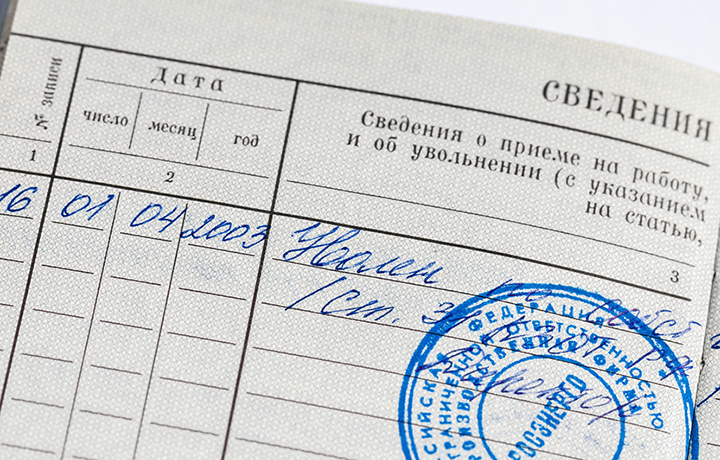 СВЕДЕНИЯ
№ записи
Дата
число
месяц
год
Сведения о приеме на работу,
и об увольнении (с указанием
на статью,
1
2
3
16 01 04 2003 Уволен по собст
(ст. 3
Директор
ФЕДЕРАЦИЯ
ОТВЕТСТВЕННОСТЬЮ
ФИРМА